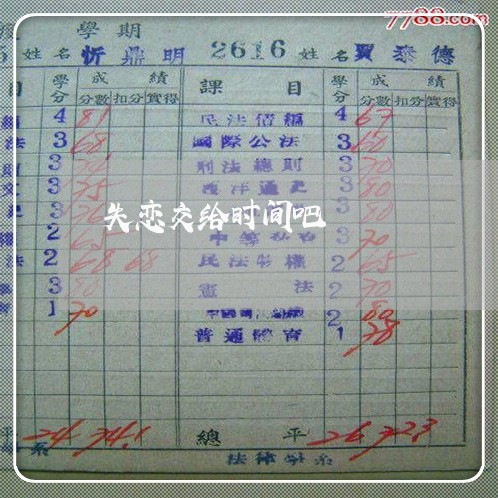 7788.com
學期
姓名 忻鼎明 2616 姓名 賈泰德
目 學分 成績 課目 學分 成績
分數 扣分 實得 分數 扣分 實得
4 81 民法債編 4 67
法 3 68 國際公法 3 60
則 3 刑法總則 3 70
3 75 西洋通史 3 80
3 3 80
失恋交给时间吧
權 2 3 70
法 2 68 68 民法物權 2 65
3 80 憲法 2 70
育 1 70 2 80
普通體育 1 78
平 24 74.1 總平 26 72.3
系 法律學系